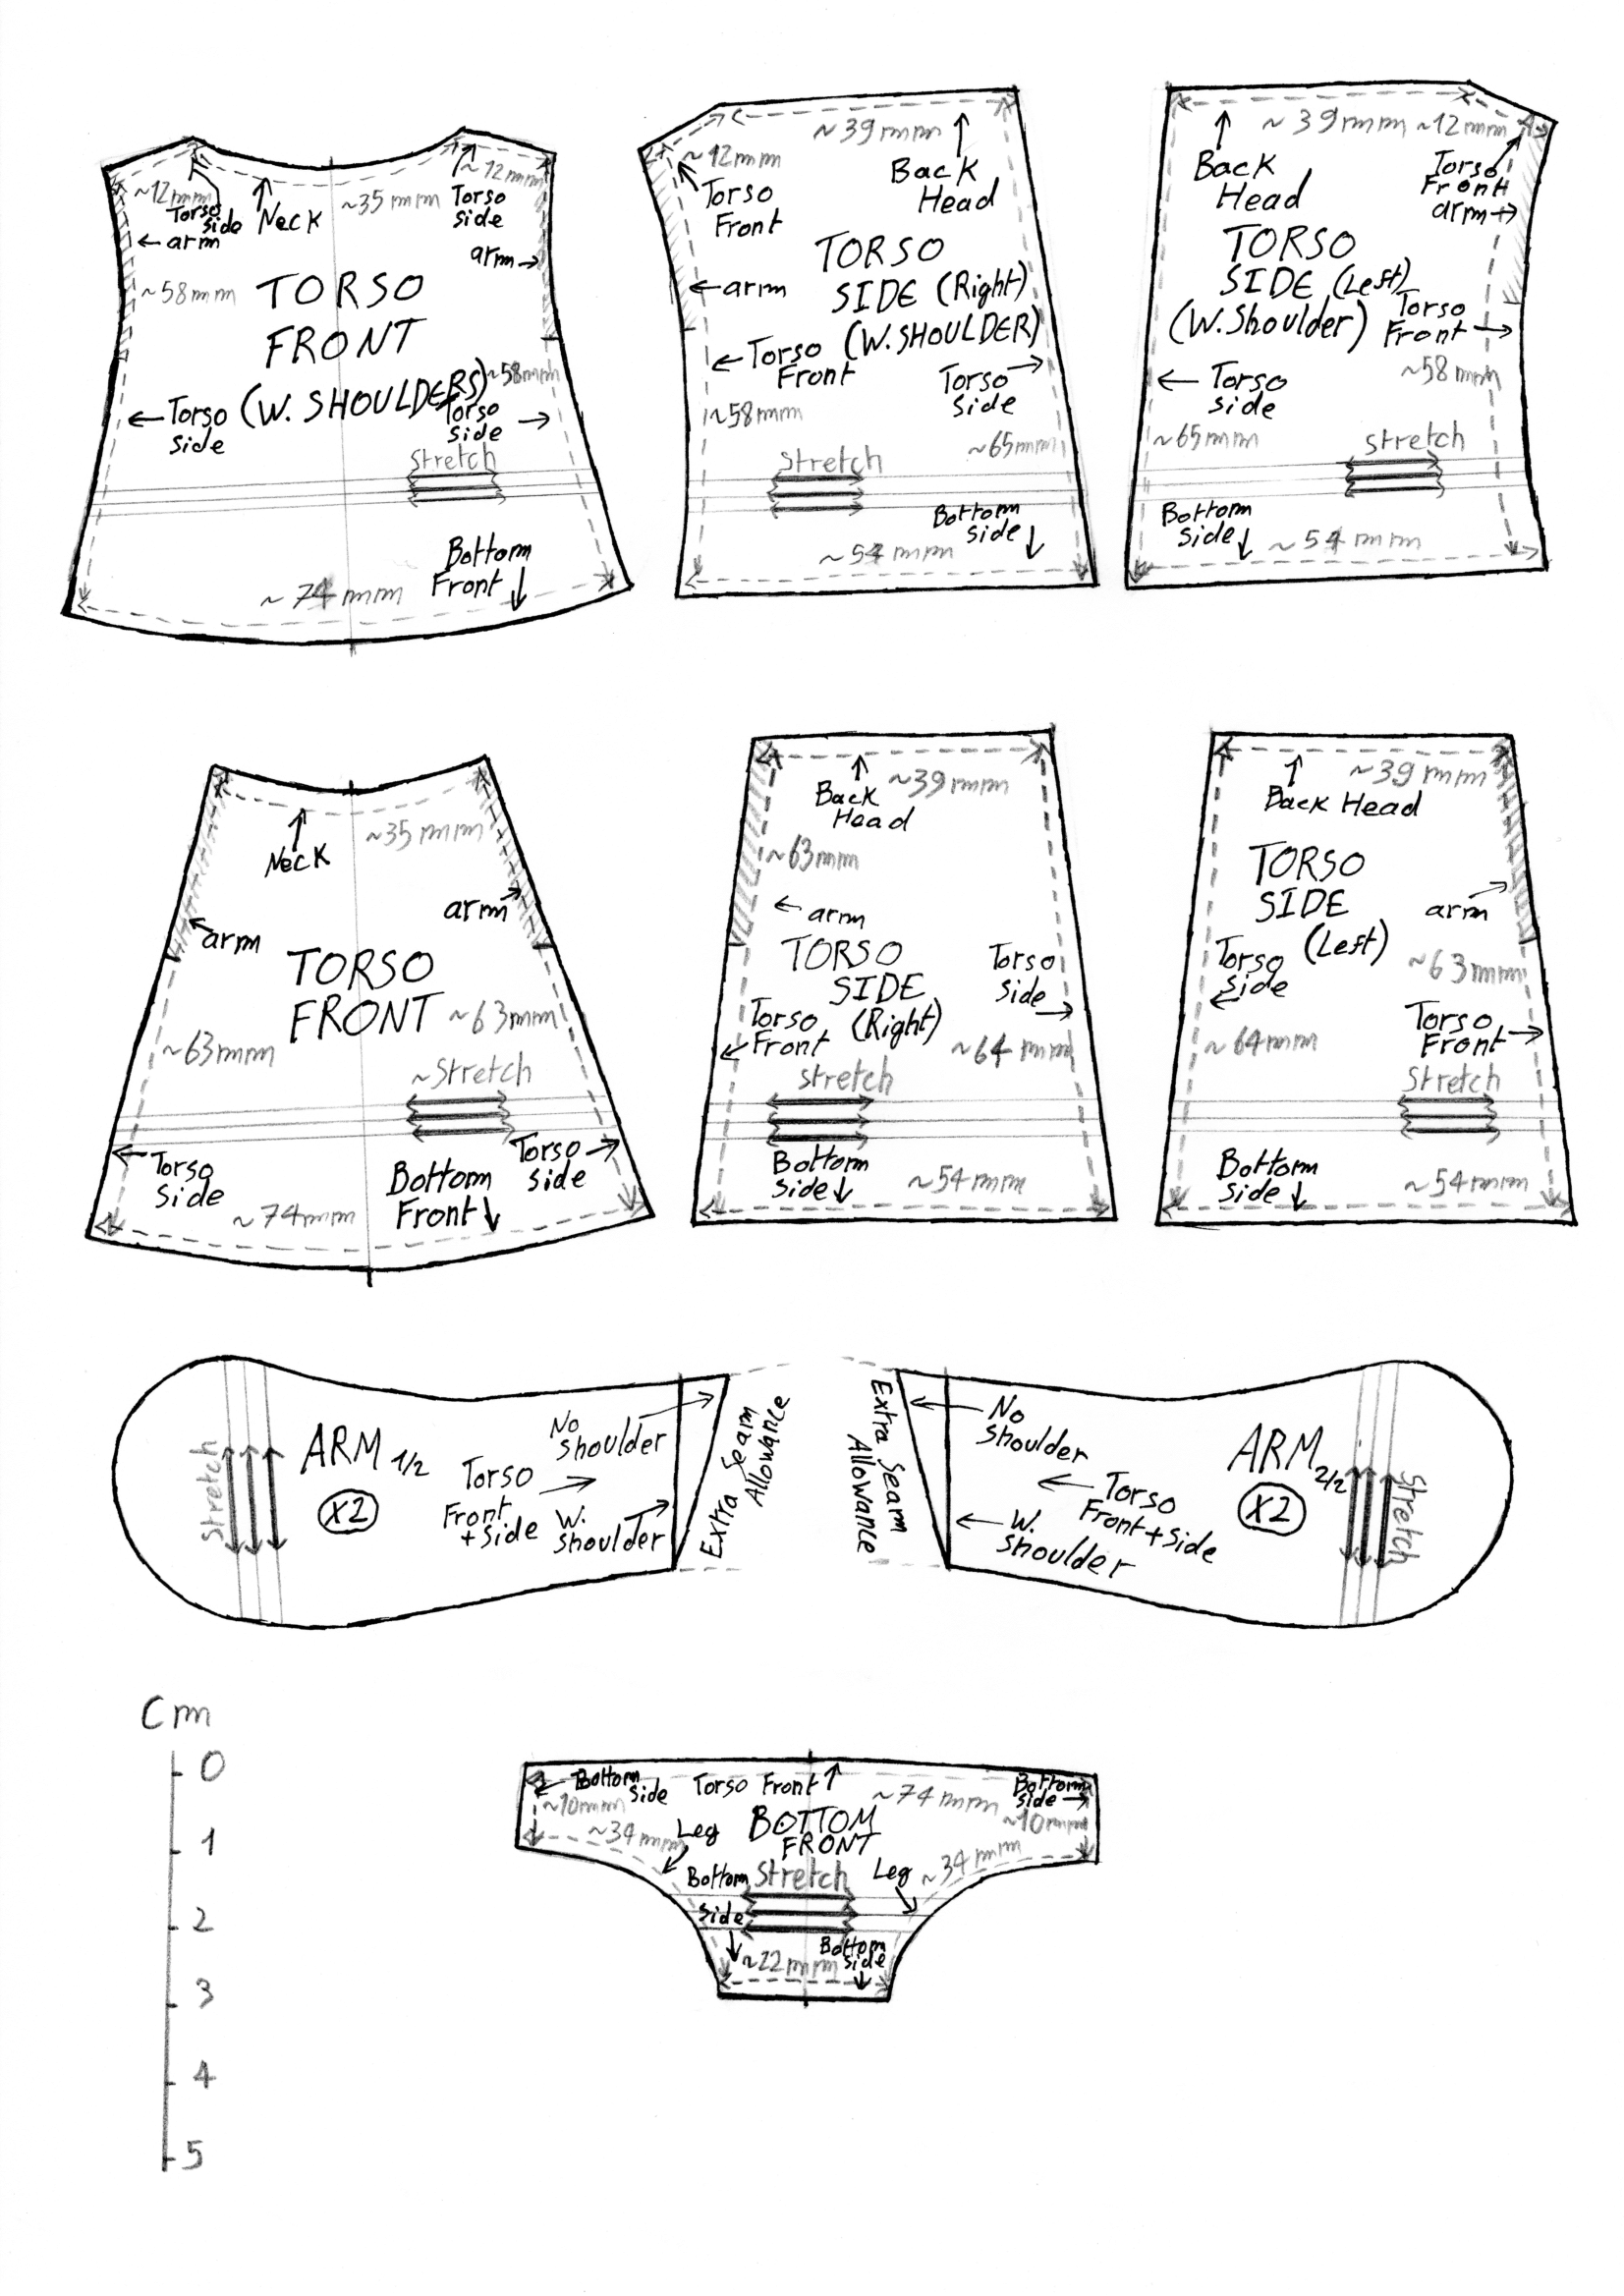 ~12mm
Torso
side
Neck
~35mm
~12mm
Torso
side
←arm
arm→
~58mm
TORSO
FRONT
(W. SHOULDERS)
~58mm
←Torso
side
Torso
side →
Stretch
Bottom
Front ↓
~74mm
~39mm
~12mm
Torso
Front
Back
Head
TORSO
SIDE (Right)
(W.SHOULDER)
←arm
←Torso
Front
Torso
side
~58mm
~65mm
Stretch
Bottom
side ↓
~54mm
~39mm
~12mm
Back
Head
Torso
Front
arm→
TORSO
SIDE (Left)
(W.Shoulder)
Torso
Front→
~58mm
← Torso
side
~65mm
stretch
Bottom
side↓
~54mm
~35mm
Neck
arm
arm
TORSO
FRONT
~63mm
~63mm
~Stretch
←Torso
Side
Torso→
side
Bottom
Front↓
~74mm
Back
Head
~39mm
~63mm
← arm
TORSO
SIDE
(Right)
Torso
Side
→
Torso
←Front
~64mm
stretch
Bottom
side↓
~54mm
~39mm
Back Head
TORSO
SIDE
(Left)
arm
Torso
side
←
~63mm
~64mm
Torso→
Front
Stretch
Bottom
side↓
~54mm
No
shoulder
Extra Seam
Allowance
ARM 1/2
X2
Stretch
Torso →
Front
+Side
W.
shoulder
Extra Seam
Allowance
No
shoulder
← Torso
Front+side
← W.
shoulder
ARM 2/2
X2
Stretch
Cm
0
1
2
3
4
5
←Bottom
side
Torso Front↑
~74mm
Bottom
side→
~10mm
~10mm
~34mm
Leg
BOTTOM
FRONT
Leg
~34mm
Bottom
side
↓
Stretch
Bottom
side
↓
~22mm